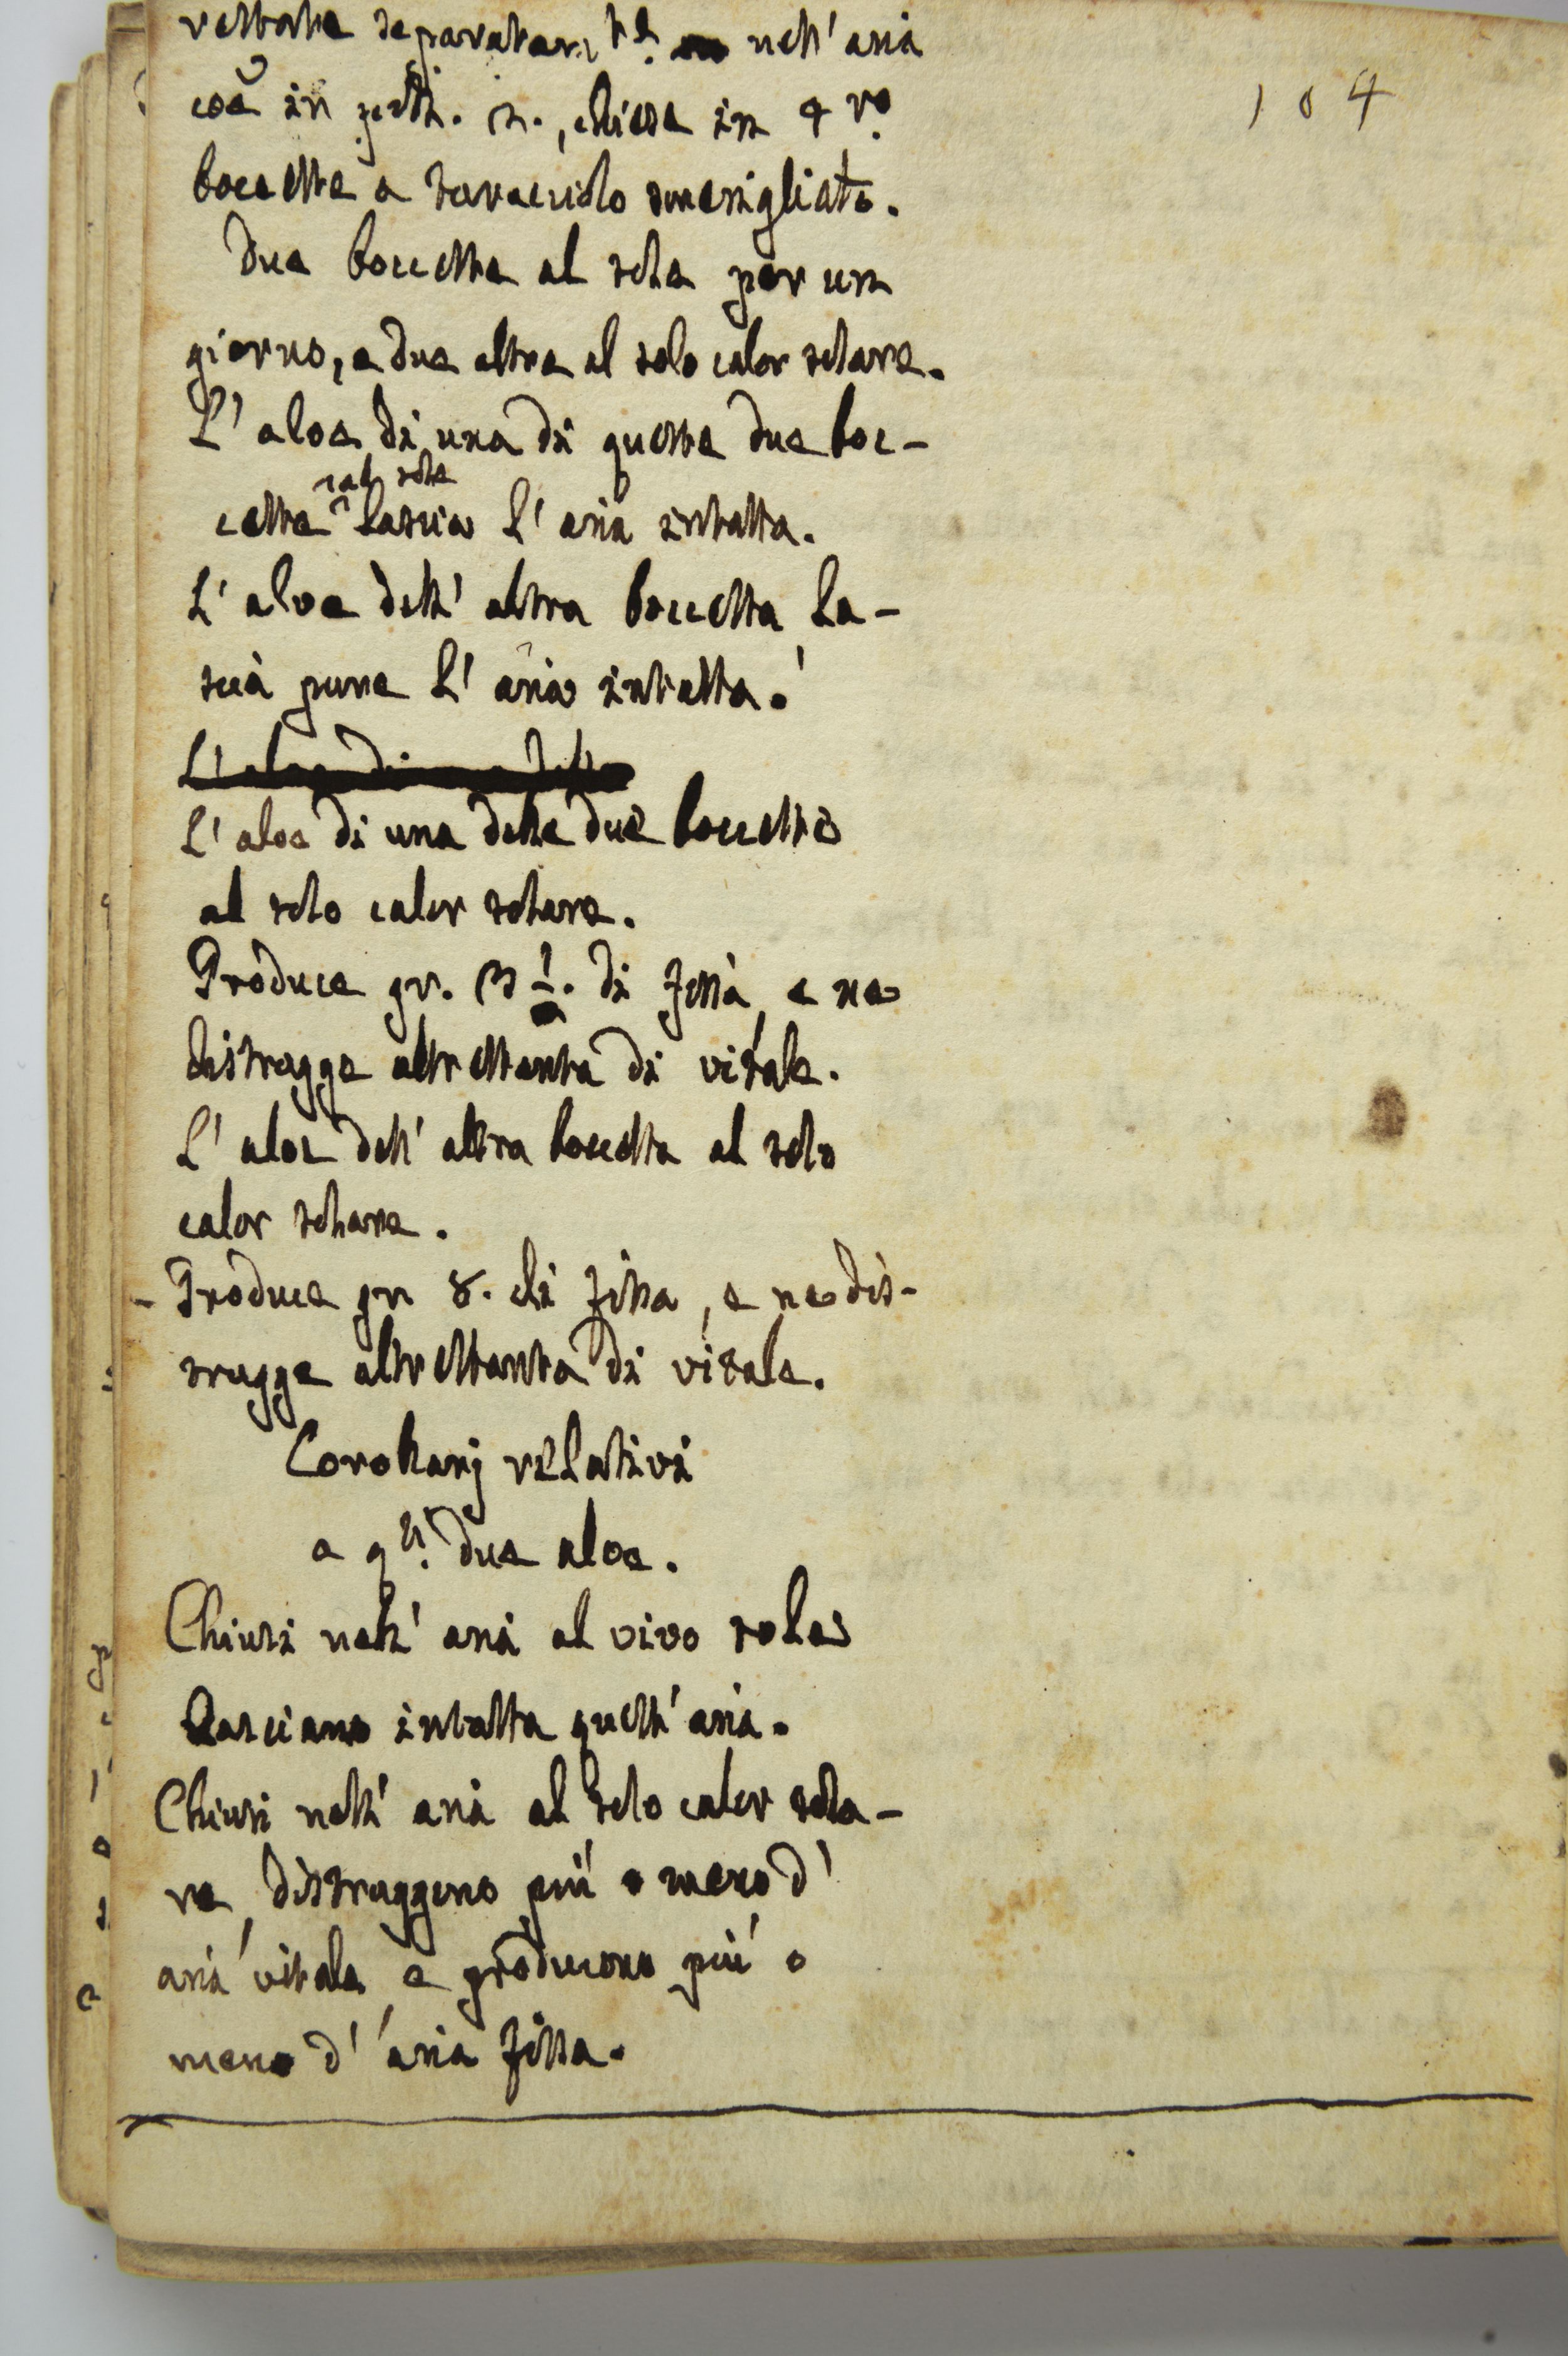 restate separatam.te nell' aria
104
coẽ in, chiuse in 4 r.o
boccette a turacciolo smerigliato.
Due boccette al sole per un
giorno, e due altre al solo calor solare.
L' aloe di una di queste due boc-
al sole
cette lascia l' aria intatta.
L' aloe dell' altra boccetta la-
scia pure l' aria intatta.
L' aloe di una delle due boccette
al solo calor solare.
Produce gr. 3 1/2. di fissa, e ne
distrugge altrettanta di vitale.
L' aloe dell' altra boccetta al solo
calor solare.
- Produce gr 8. di fissa, e ne dis-
trugge altrettanta di vitale.
Corollarj relativi
a q.ti due aloe.
Chiusi nell' aria al vivo sole
Lasciano intatta quell' aria.
Chiusi nell' aria al solo calor sola-
re, distruggono più o meno d'
aria vitale, e producono più o
meno d' aria fissa.